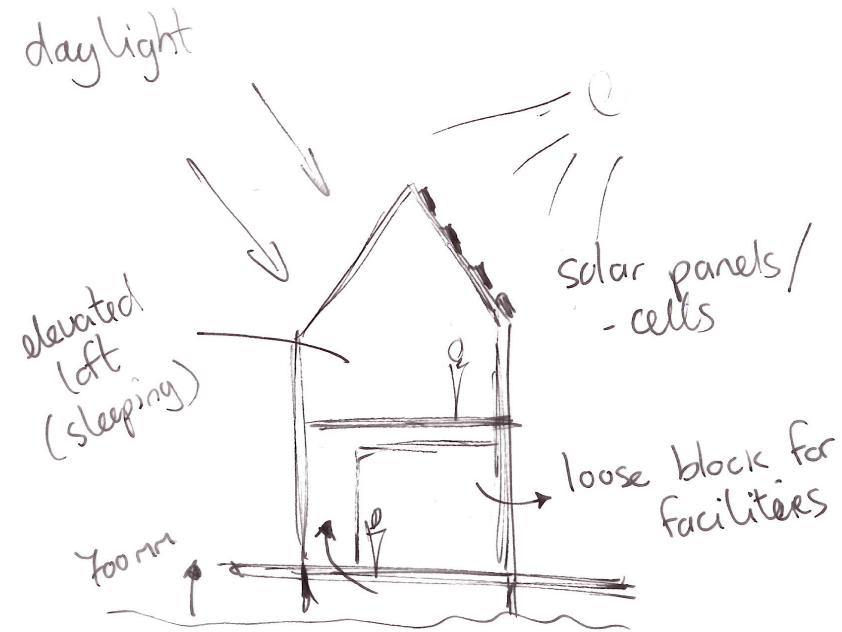 daylight
solar panels/
-cells
elevated
loft
(sleeping)
loose block for
facilities
700mm